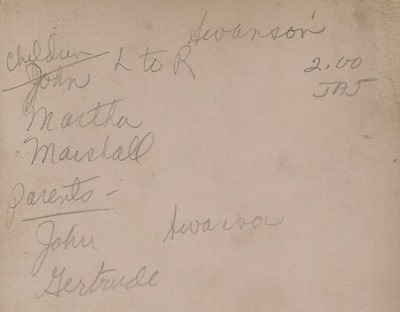 Swanson
children L to R 2.00
John JAJ
Martha
Marshall
parents -
John Swanson
Gertrude